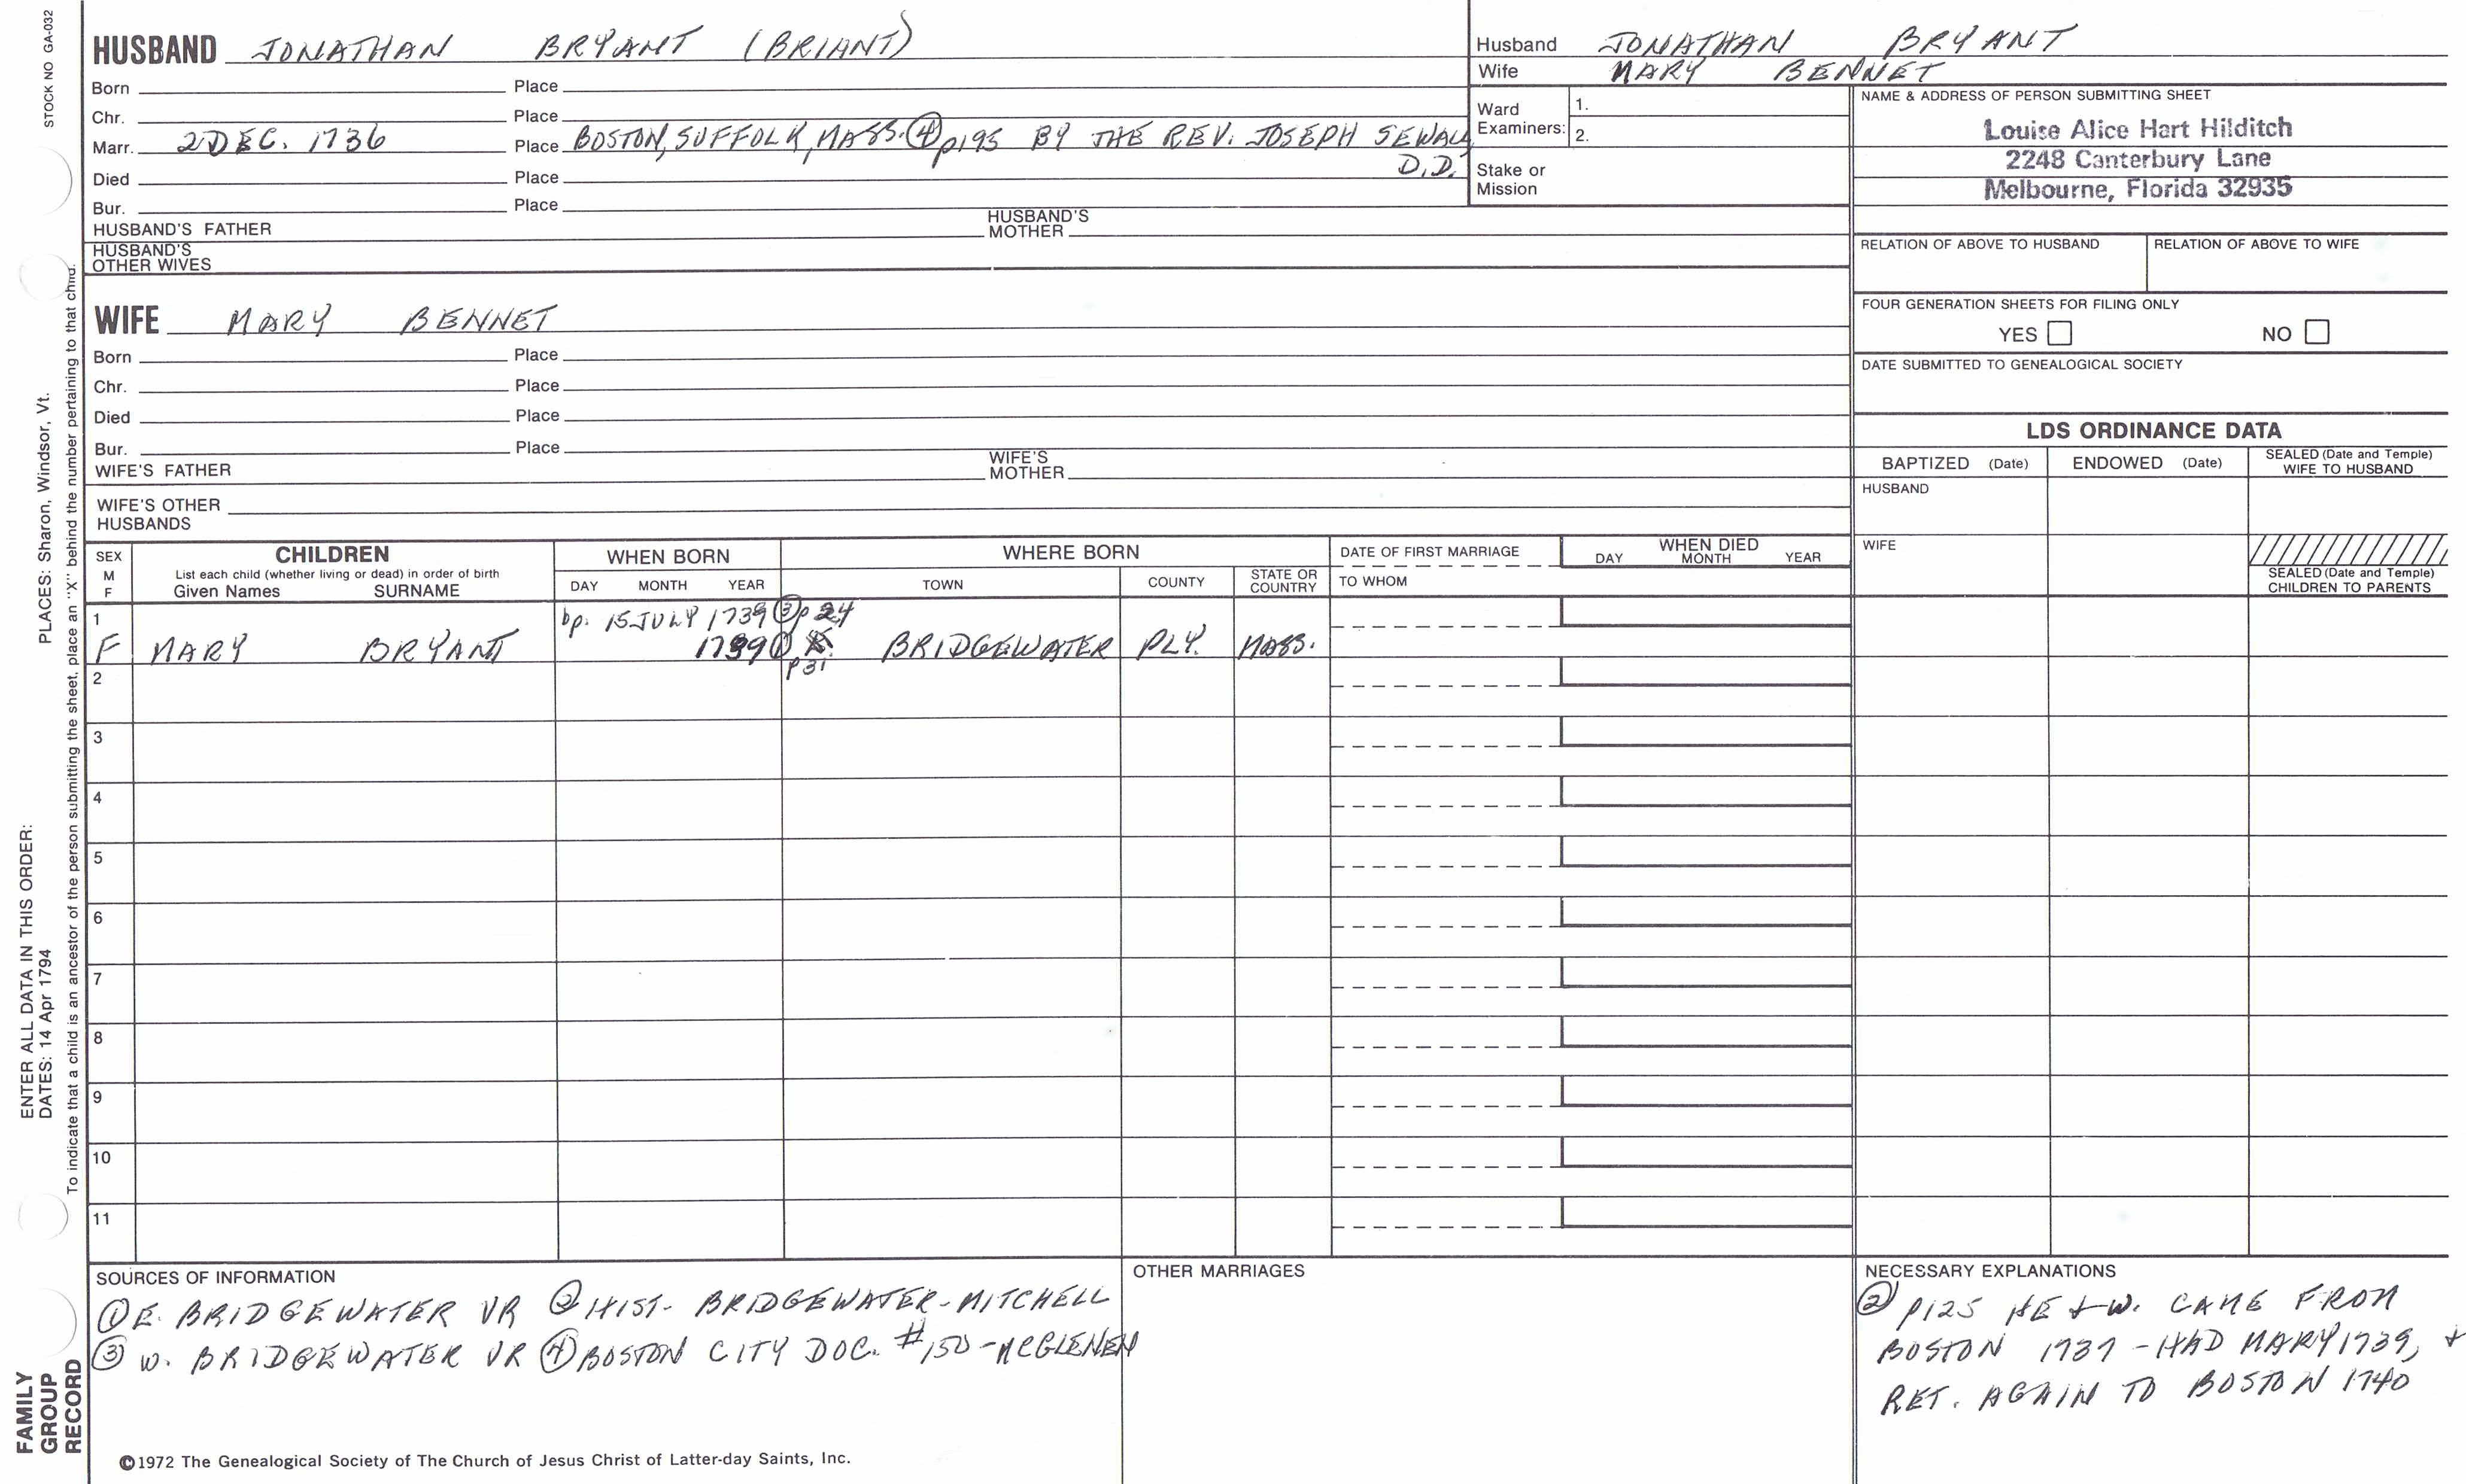 STOCK NO GA-032
HUSBAND JONATHAN BRYANT (BRIANT)
Born Place
Chr. Place
Marr. 2 DEC. 1736 Place BOSTON, SUFFOLK, MASS. ④ p195 BY THE REV. JOSEPH SEWALL
D.D.
Died Place
Bur. Place
HUSBAND'S FATHER HUSBAND'S MOTHER
HUSBAND'S OTHER WIVES
Husband JONATHAN BRYANT
Wife MARY BENNET
Ward Examiners: 1.
2.
Stake or Mission
NAME & ADDRESS OF PERSON SUBMITTING SHEET
Louise Alice Hart Hilditch
2248 Canterbury Lane
Melbourne, Florida 32935
RELATION OF ABOVE TO HUSBAND RELATION OF ABOVE TO WIFE
FOUR GENERATION SHEETS FOR FILING ONLY
YES NO
DATE SUBMITTED TO GENEALOGICAL SOCIETY
WIFE MARY BENNET
Born Place
Chr. Place
Died Place
Bur. Place
WIFE'S FATHER WIFE'S MOTHER
WIFE'S OTHER HUSBANDS
LDS ORDINANCE DATA
BAPTIZED (Date) ENDOWED (Date) SEALED (Date and Temple) WIFE TO HUSBAND
HUSBAND
WIFE
SEALED (Date and Temple) CHILDREN TO PARENTS
SEX M F CHILDREN WHEN BORN WHERE BORN DATE OF FIRST MARRIAGE WHEN DIED
List each child (whether living or dead) in order of birth
Given Names SURNAME DAY MONTH YEAR TOWN COUNTY STATE OR COUNTRY TO WHOM DAY MONTH YEAR
1 bp. 15 JULY 1739 ③ p 24
F MARY BRYANT 1739 ① BRIDGEWATER PLY. MASS.
p31
2
3
4
5
6
7
8
9
10
11
SOURCES OF INFORMATION
① E. BRIDGEWATER VR ② HIST. BRIDGEWATER-MITCHELL
③ W. BRIDGEWATER VR ④ BOSTON CITY DOC. #150-MCGLENEN
OTHER MARRIAGES
NECESSARY EXPLANATIONS
② P125 HE + W. CAME FROM
BOSTON 1737 - HAD MARY 1739, +
RET. AGAIN TO BOSTON 1740
©1972 The Genealogical Society of The Church of Jesus Christ of Latter-day Saints, Inc.
FAMILY
GROUP
RECORD
ENTER ALL DATA IN THIS ORDER:
DATES: 14 Apr 1794
PLACES: Sharon, Windsor, Vt.
To indicate that a child is an ancestor of the person submitting the sheet, place an "X" behind the number pertaining to that child.